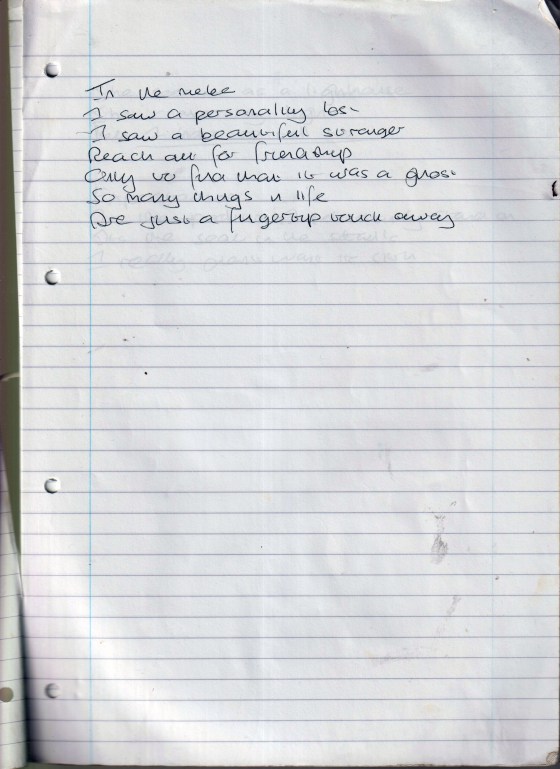 In the melee
I saw a personality lost
I saw a beautiful stranger
Reach out for friendship
Only to find that it was a ghost
So many things in life
Are just a fingertip touch away